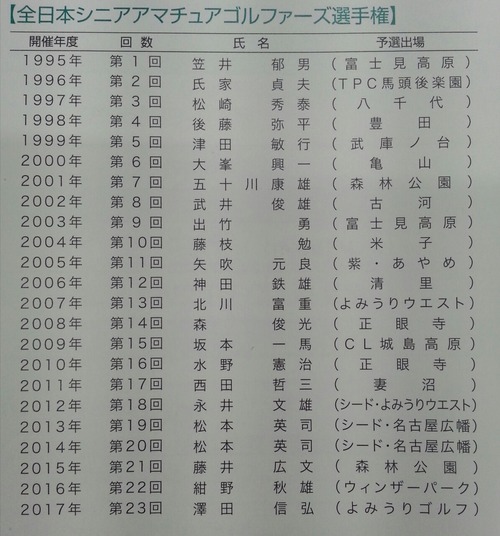 【全日本シニアアマチュアゴルファーズ選手権】
開催年度 回数 氏名 予選出場
1995年 第1回 笠井郁男 (富士見高原)
1996年 第2回 氏家貞夫 (TPC馬頭後楽園)
1997年 第3回 松崎秀泰 (八千代)
1998年 第4回 後藤弥平 (豊田)
1999年 第5回 津田敏行 (武庫ノ台)
2000年 第6回 大峯興一 (亀山)
2001年 第7回 五十川康雄 (森林公園)
2002年 第8回 武井俊雄 (古河)
2003年 第9回 出竹勇 (富士見高原)
2004年 第10回 藤枝勉 (米子)
2005年 第11回 矢吹元良 (紫・あやめ)
2006年 第12回 神田鉄雄 (清里)
2007年 第13回 北川富重 (よみうりウエスト)
2008年 第14回 森俊光 (正眼寺)
2009年 第15回 坂本一馬 (CL城島高原)
2010年 第16回 水野憲治 (正眼寺)
2011年 第17回 西田哲三 (妻沼)
2012年 第18回 永井文雄 (シード・よみうりウエスト)
2013年 第19回 松本英司 (シード・名古屋広幡)
2014年 第20回 松本英司 (シード・名古屋広幡)
2015年 第21回 藤井広文 (森林公園)
2016年 第22回 紺野秋雄 (ウィンザーパーク)
2017年 第23回 澤田信弘 (よみうりゴルフ)